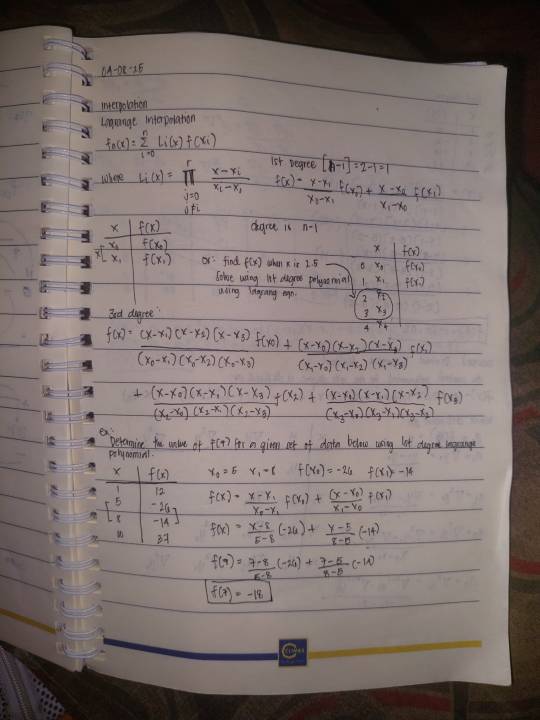 04-08-25
Interpolation
Lagrange Interpolation
fn(x) = Σ Li(x) f(xi)
n
i=0
where Li(x) = ∏ x-xi / xi-xj
j=0
j≠i
1st degree [n-1] = 2-1 = 1
f(x) = x-x1 / x0-x1 f(x0) + x-x0 / x1-x0 f(x1)
degree is n-1
x f(x)
x0 f(x0)
x1 f(x1)
find f(x) when x is 2.5
solve using 1st degree polynomial
using lagrang eqn.
x f(x)
0 x0 f(x0)
1 x1 f(x1)
2 x2
3 x3
4 x4
3rd degree:
f(x) = (x-x1)(x-x2)(x-x3) / (x0-x1)(x0-x2)(x0-x3) f(x0) + (x-x0)(x-x2)(x-x3) / (x1-x0)(x1-x2)(x1-x3) f(x1)
+ (x-x0)(x-x1)(x-x3) / (x2-x0)(x2-x1)(x2-x3) f(x2) + (x-x0)(x-x1)(x-x2) / (x3-x0)(x3-x1)(x3-x2) f(x3)
ex:
Determine the value of f(7) for a given set of data below using 1st degree lagrange
polynomial.
x f(x)
1 12
5 -26
8 -14
10 37
x0=5 x1=8 f(x0)=-26 f(x1)=-14
f(x) = x-x1 / x0-x1 f(x0) + (x-x0) / x1-x0 f(x1)
f(x) = x-8 / 5-8 (-26) + x-5 / 8-5 (-14)
f(7) = 7-8 / 5-8 (-26) + 7-5 / 8-5 (-14)
f(7) = -18